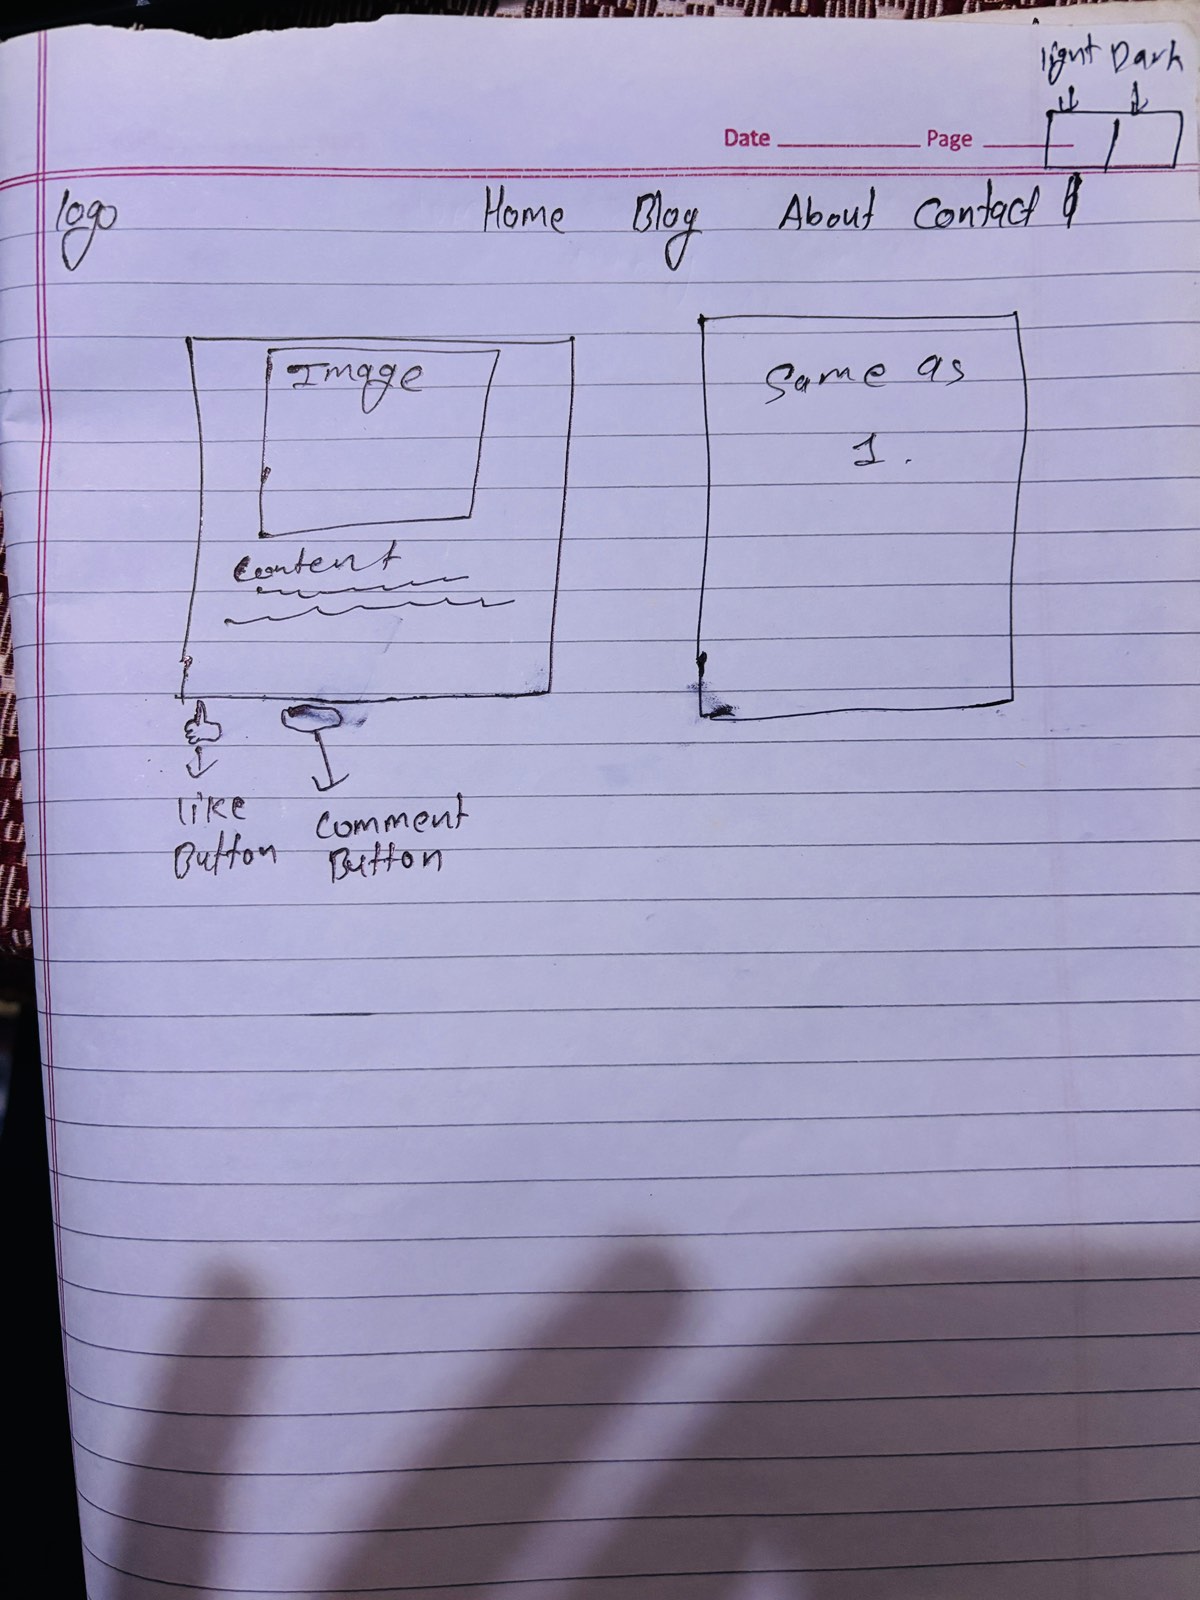 light Dark
Date Page
logo Home Blog About Contact
Image
Same as
1.
Content
like
Button
Comment
Button